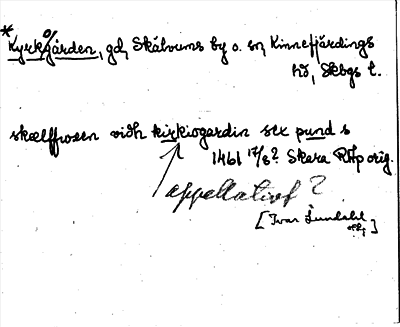 *Kyrkogården, gd, Skälvums by o. sn, Kinnefjärdings
hd, Skbgs l.
skælffwsen widh kirkiogardin sex pund s
1461 17/8? Skara RAp orig.
appellativt?
[Ivar Lundahl
]